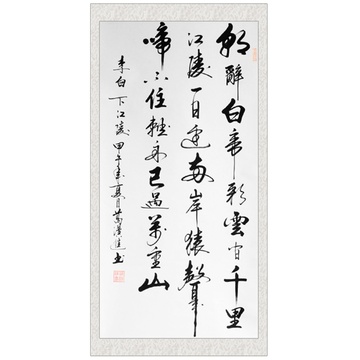 朝辭白帝彩雲間千里
江陵一日還兩岸猿聲
啼不住輕舟已過萬重山
李白 下江陵 甲午年夏月 書